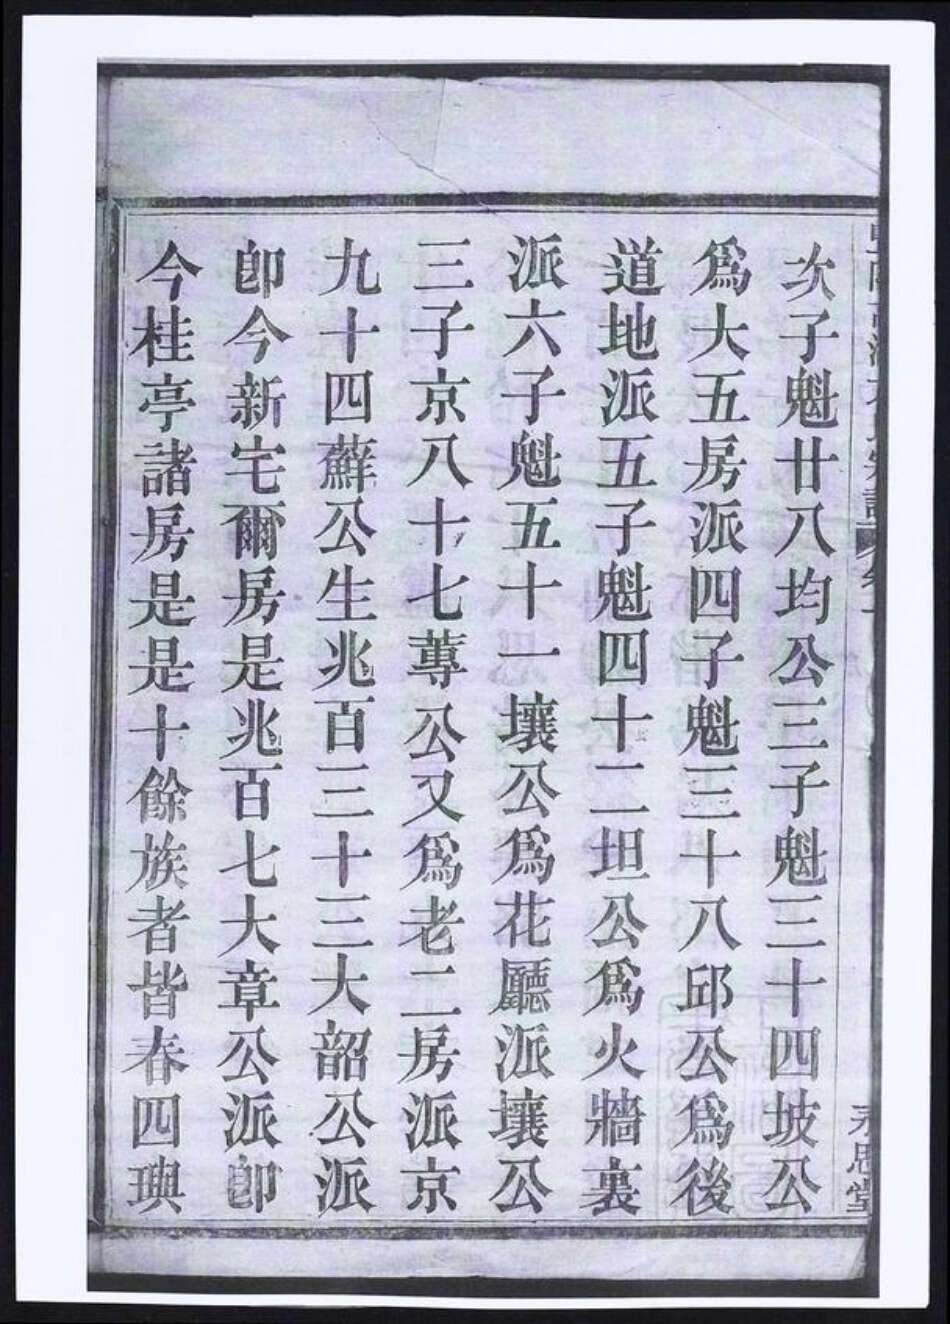 永思堂
次子魁廿八均公三子魁三十四坡公
爲大五房派四子魁三十八邱公爲後
道地派五子魁四十二坦公爲火牆裏
派六子魁五十一壤公爲花廳派壤公
三子京八十七蓴公又爲老二房派京
九十四蘇公生兆百三十三大韶公派
卽今新宅爾房是兆百七大章公派卽
今桂亭諸房是是十餘族者皆春四琠